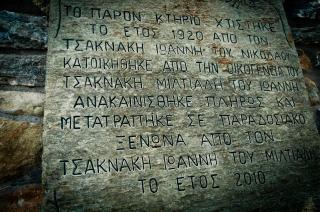 ΤΟ ΠΑΡΟΝ ΚΤΗΡΙΟ ΧΤΙΣΤΗΚΕ
ΤΟ ΕΤΟΣ 1920 ΑΠΟ ΤΟΝ
ΤΣΑΚΝΑΚΗ ΙΩΑΝΝΗ ΤΟΥ ΝΙΚΟΛΑΟΥ
ΚΑΤΟΙΚΗΘΗΚΕ ΑΠΟ ΤΗΝ ΟΙΚΟΓΕΝΕΙΑ ΤΟΥ
ΤΣΑΚΝΑΚΗ ΜΙΛΤΙΑΔΗ ΤΟΥ ΙΩΑΝΝΗ
ΑΝΑΚΑΙΝΙΣΘΗΚΕ ΠΛΗΡΟΣ ΚΑΙ
ΜΕΤΑΤΡΑΠΤΗΚΕ ΣΕ ΠΑΡΑΔΟΣΙΑΚΟ
ΞΕΝΩΝΑ ΑΠΟ ΤΟΝ
ΤΣΑΚΝΑΚΗ ΙΩΑΝΝΗ ΤΟΥ ΜΙΛΤΙΑΔΗ
ΤΟ ΕΤΟΣ 2010